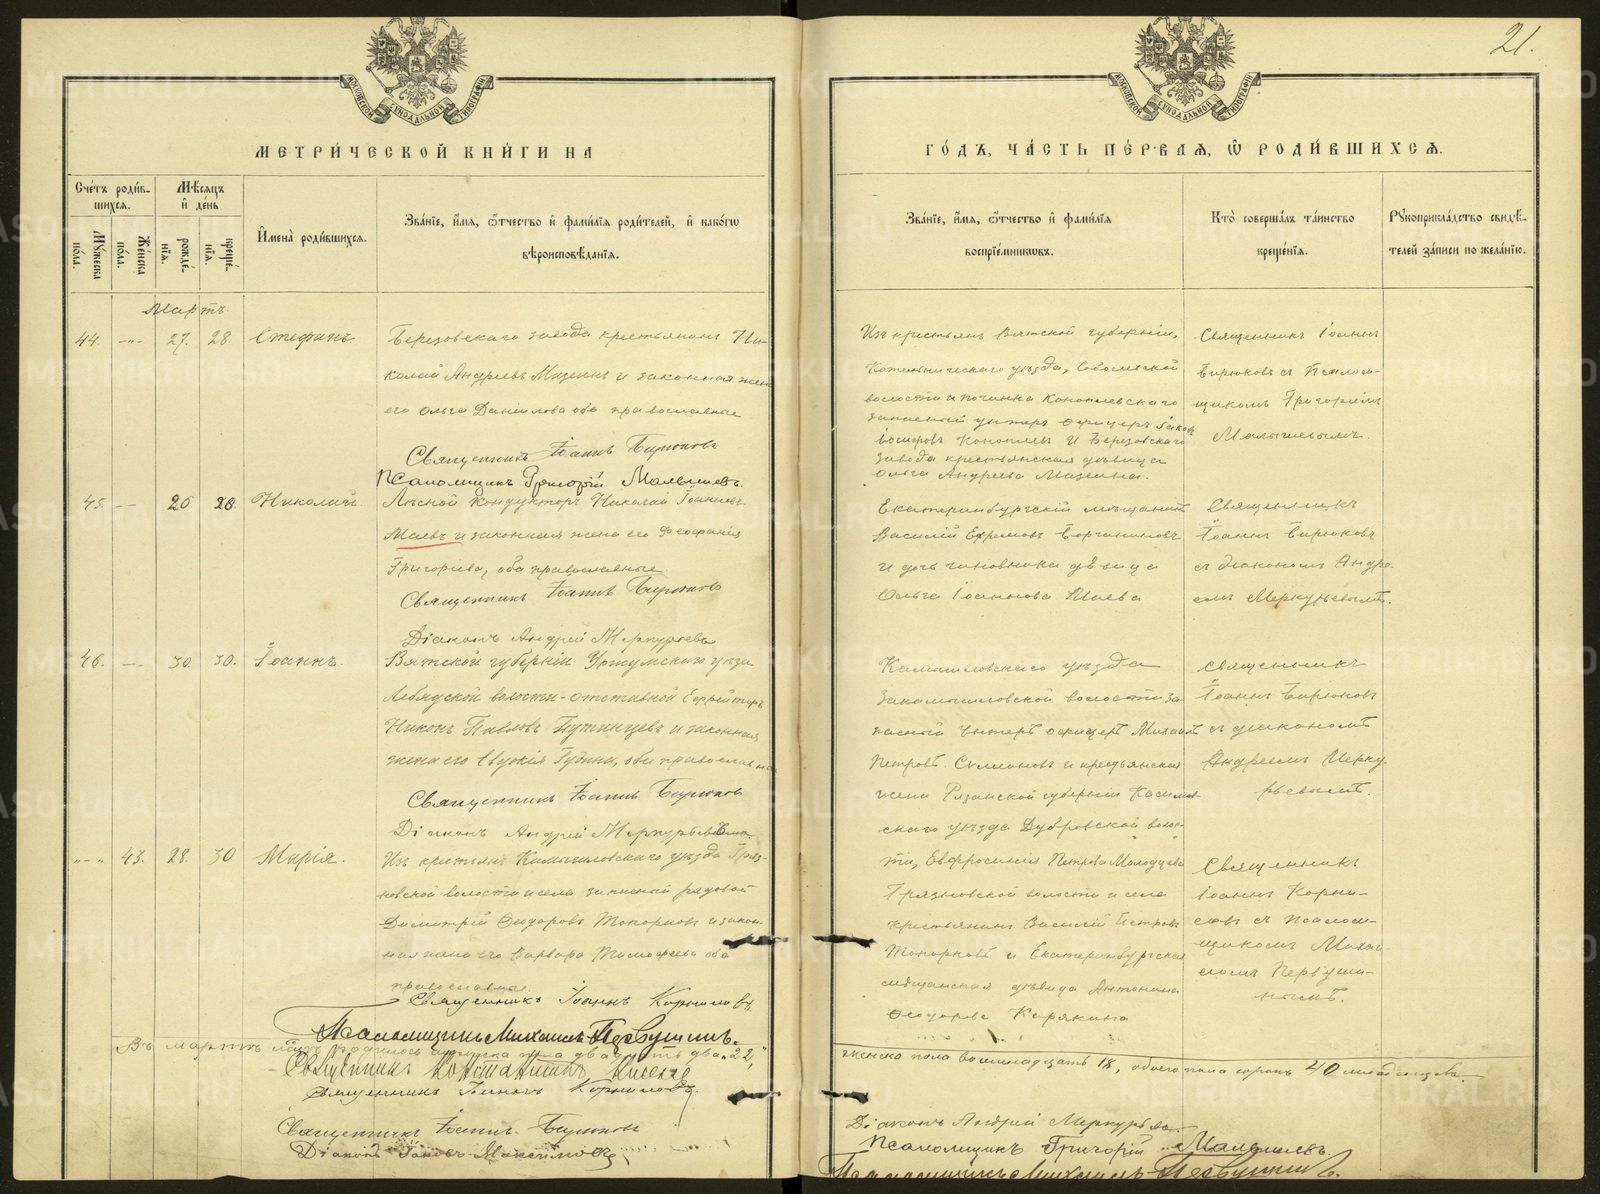 21.
МЕТРИ́ЧЕСКОЙ КНИ́ГИ НА
Сче́тъ роди́в-
шихся.
Мѣсяцъ
и҆ де́нь
Му́жеска
по́ла.
Же́нска
по́ла.
рожде́-
нїя.
креще́-
нїя.
И҆мена̀ роди́вшихся.
Зва́нїе, и҆́мя, ѻ҆́тчество и҆ фами́лїя роди́телей, и҆ како́гѡ
вѣроисповѣ́данїя.
Мартъ.
44. -"- 27. 28. Стефанъ.
Березовскаго завода крестьянинъ Ни-
колай Андреевъ Мизеинъ и законная жена
его Ольга Даніилова оба православные
Священникъ Іоаннъ Бирюковъ
Псаломщикъ Григорій Малышевъ.
45. -"- 26 28. Николай.
Лѣсной Кондукторъ Николай Іоанновъ
Маевъ и законная жена его Феофанія
Григорьева, оба православные
Священникъ Іоаннъ Бирюковъ
Діаконъ Андрей Меркурьевъ
46. -"- 30. 30. Іоаннъ.
Вятской губерніи Уржумскаго уѣзда
Лебяжской волости - отставной Ефрейторъ
Никонъ Павловъ и законная
жена его Евдокія оба православные
Священникъ Іоаннъ Бирюковъ
Діаконъ Андрей Меркурьевъ
-"- 43. 28. 30 Марія.
Изъ крестьянъ Камышловскаго уѣзда Гряз-
новской волости и села запасный рядовой
Димитрій Ѳеодоровъ Топорковъ и закон-
ная жена его Варвара Тимофеева оба
православные.
Священникъ Іоаннъ Корниловъ.
Псаломщикъ Михаилъ Первушинъ.
Въ мартѣ родилось мужска пола двадцать два "22"
Священникъ Константинъ
Священникъ Іоаннъ Корниловъ.
Священникъ Іоаннъ Бирюковъ
Діаконъ
ГО́ДЪ, ЧА́СТЬ ПЕ́РВАЯ, Ѡ҆ РОДИ́ВШИХСЯ.
Зва́нїе, и҆́мя, ѻ҆́тчество и҆ фами́лїя
воспрїе́мниковъ.
Кто̀ соверша́лъ та́инство
креще́нїя.
Рꙋкоприкла́дство свидѣ́-
телей за́писи по жела́нїю.
Изъ крестьянъ Вятской губерніи,
Котельническаго уѣзда,
волости и починка Коноплевскаго
запасный унтеръ офицеръ Іаковъ
Іосифовъ Коноплевъ и Березовскаго
завода крестьянская дѣвица
Ольга Андреева Мизеина.
Священникъ Іоаннъ
Бирюковъ съ Псалом-
щикомъ Григоріемъ
Малышевымъ.
Екатеринбургскій мѣщанинъ
Василій Ефремовъ
и дочь чиновника дѣвица
Ольга Іоаннова Маева
Священникъ
Іоаннъ Бирюковъ
съ діакономъ Андре-
емъ Меркурьевымъ.
Камышловскаго уѣзда
Закамышловской волости за-
пасный Унтеръ офицеръ Михаилъ
Петровъ Симоновъ и крестьянская
жена Рязанской губерніи Касимов-
скаго уѣзда Дубровской волос-
ти, Евфросинія Петрова Молодцева
Священникъ
Іоаннъ Бирюковъ
съ діакономъ
Андреемъ Мерку-
рьевымъ.
Грязновской волости и села
крестьянинъ Василій Петровъ
Топорковъ и Екатеринбургская
мѣщанская дѣвица Антонина
Ѳеодорова Карякина
Священникъ
Іоаннъ Корни-
ловъ съ псалом-
щикомъ Михаи-
ломъ Первуши-
нымъ.
женска пола восемнадцать 18, обоего пола сорокъ 40 младенцевъ.
Діаконъ Андрей Меркурьевъ.
Псаломщикъ Григорій Малышевъ.
Псаломщикъ Михаилъ Первушинъ.
METRIKI.GASO-URAL.RU